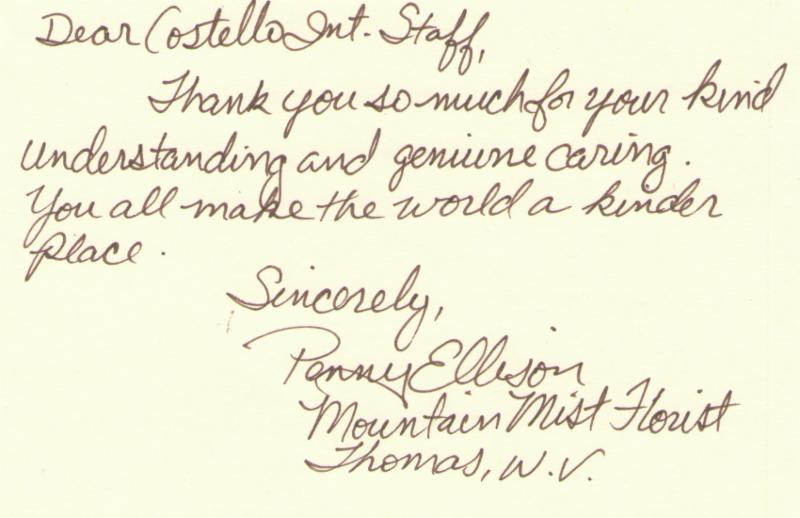 Dear Costello Int. Staff,
Thank you so much for your kind
understanding and geniune caring.
You all make the world a kinder
place.
Sincerely,
Penny Ellison
Mountain Mist Florist
Thomas, W.V.